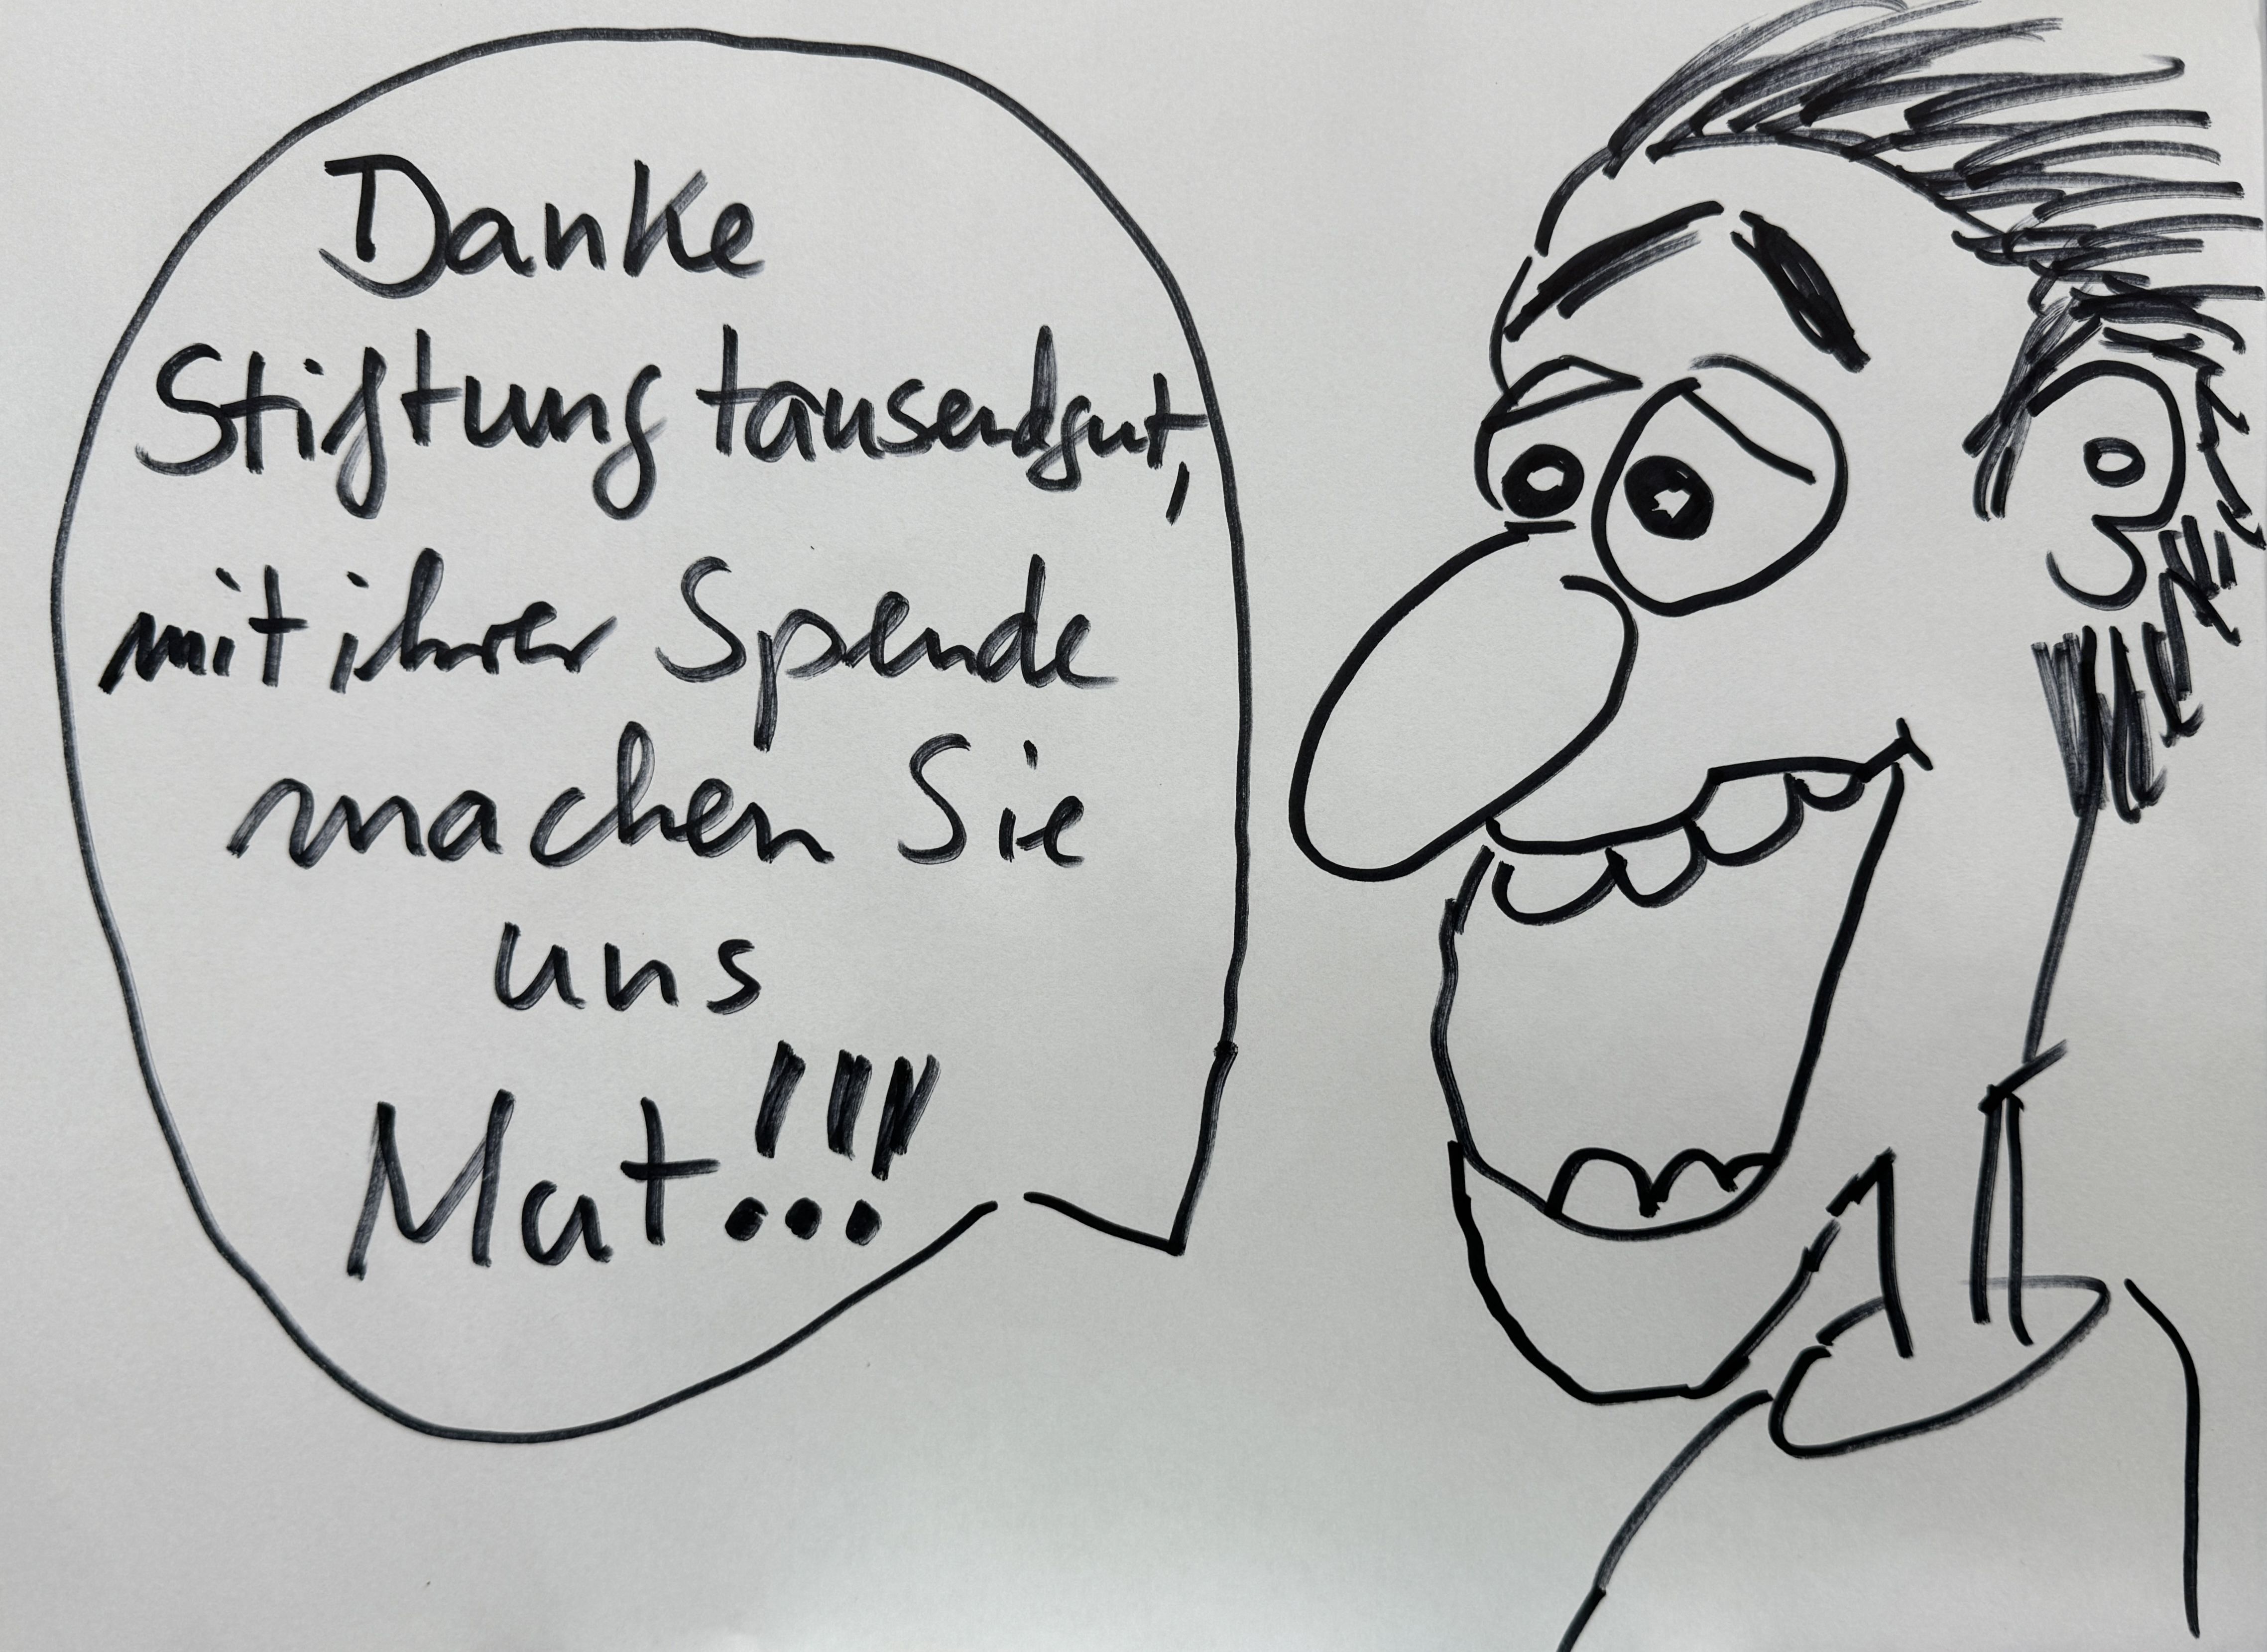 Danke
Stiftung tausendgut,
mit ihrer Spende
machen Sie
uns
Mut!!!